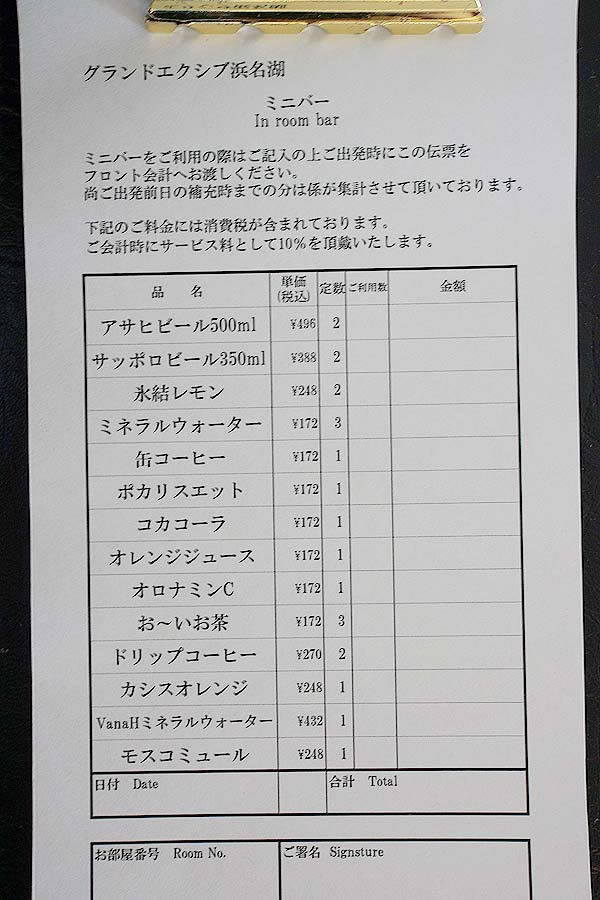 グランドエクシブ浜名湖
ミニバー
In room bar
ミニバーをご利用の際はご記入の上ご出発時にこの伝票を
フロント会計へお渡しください。
尚ご出発前日の補充時までの分は係が集計させて頂いております。
下記のご料金には消費税が含まれております。
ご会計時にサービス料として10％を頂戴いたします。
品 名 単価(税込) 定数 ご利用数 金額
アサヒビール500ml ¥496 2
サッポロビール350ml ¥388 2
氷結レモン ¥248 2
ミネラルウォーター ¥172 3
缶コーヒー ¥172 1
ポカリスエット ¥172 1
コカコーラ ¥172 1
オレンジジュース ¥172 1
オロナミンC ¥172 1
お～いお茶 ¥172 3
ドリップコーヒー ¥270 2
カシスオレンジ ¥248 1
VanaHミネラルウォーター ¥432 1
モスコミュール ¥248 1
日付 Date 合計 Total
お部屋番号 Room No. ご署名 Signsture